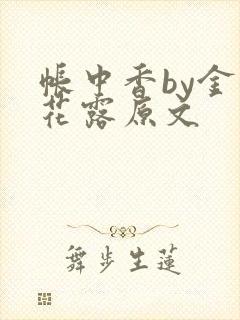 帐中香by金
花露原文
舞步生蓮